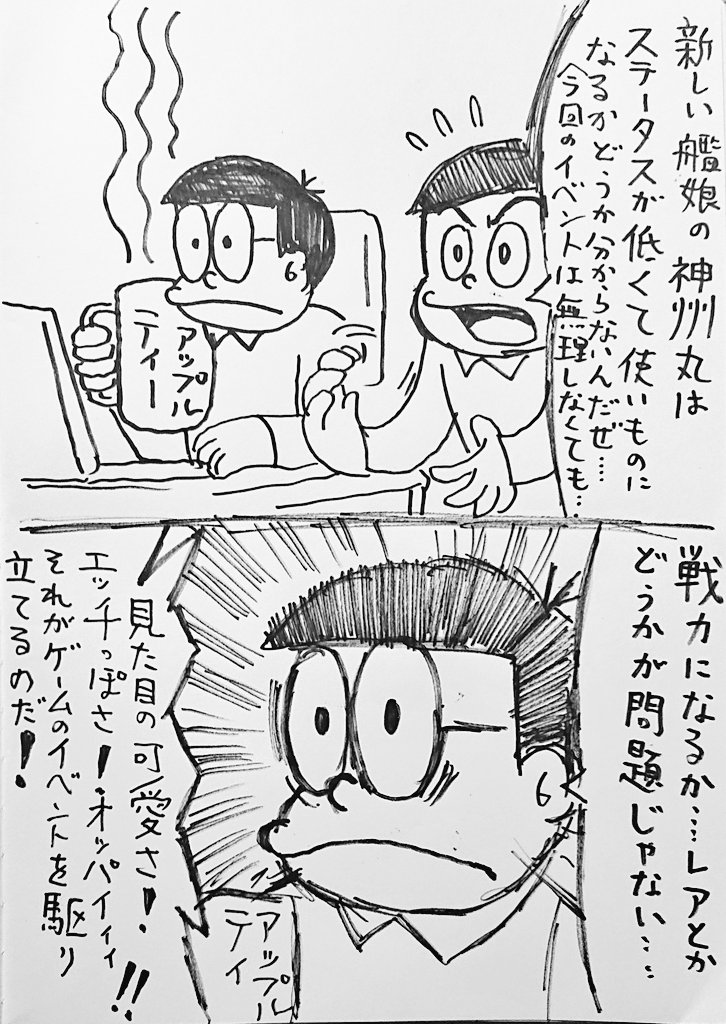 新しい艦娘の神州丸は
ステータスが低くて使いものに
なるかどうか分からないんだぜ…
今回のイベントは無理しなくても…
アップル
ティー
戦力になるか…レアとか
どうかが問題じゃない…
見た目の可愛さ!
エッチっぽさ!オッパイィィ!!
それがゲームのイベントを駆り
立てるのだ!
アップル
ティ